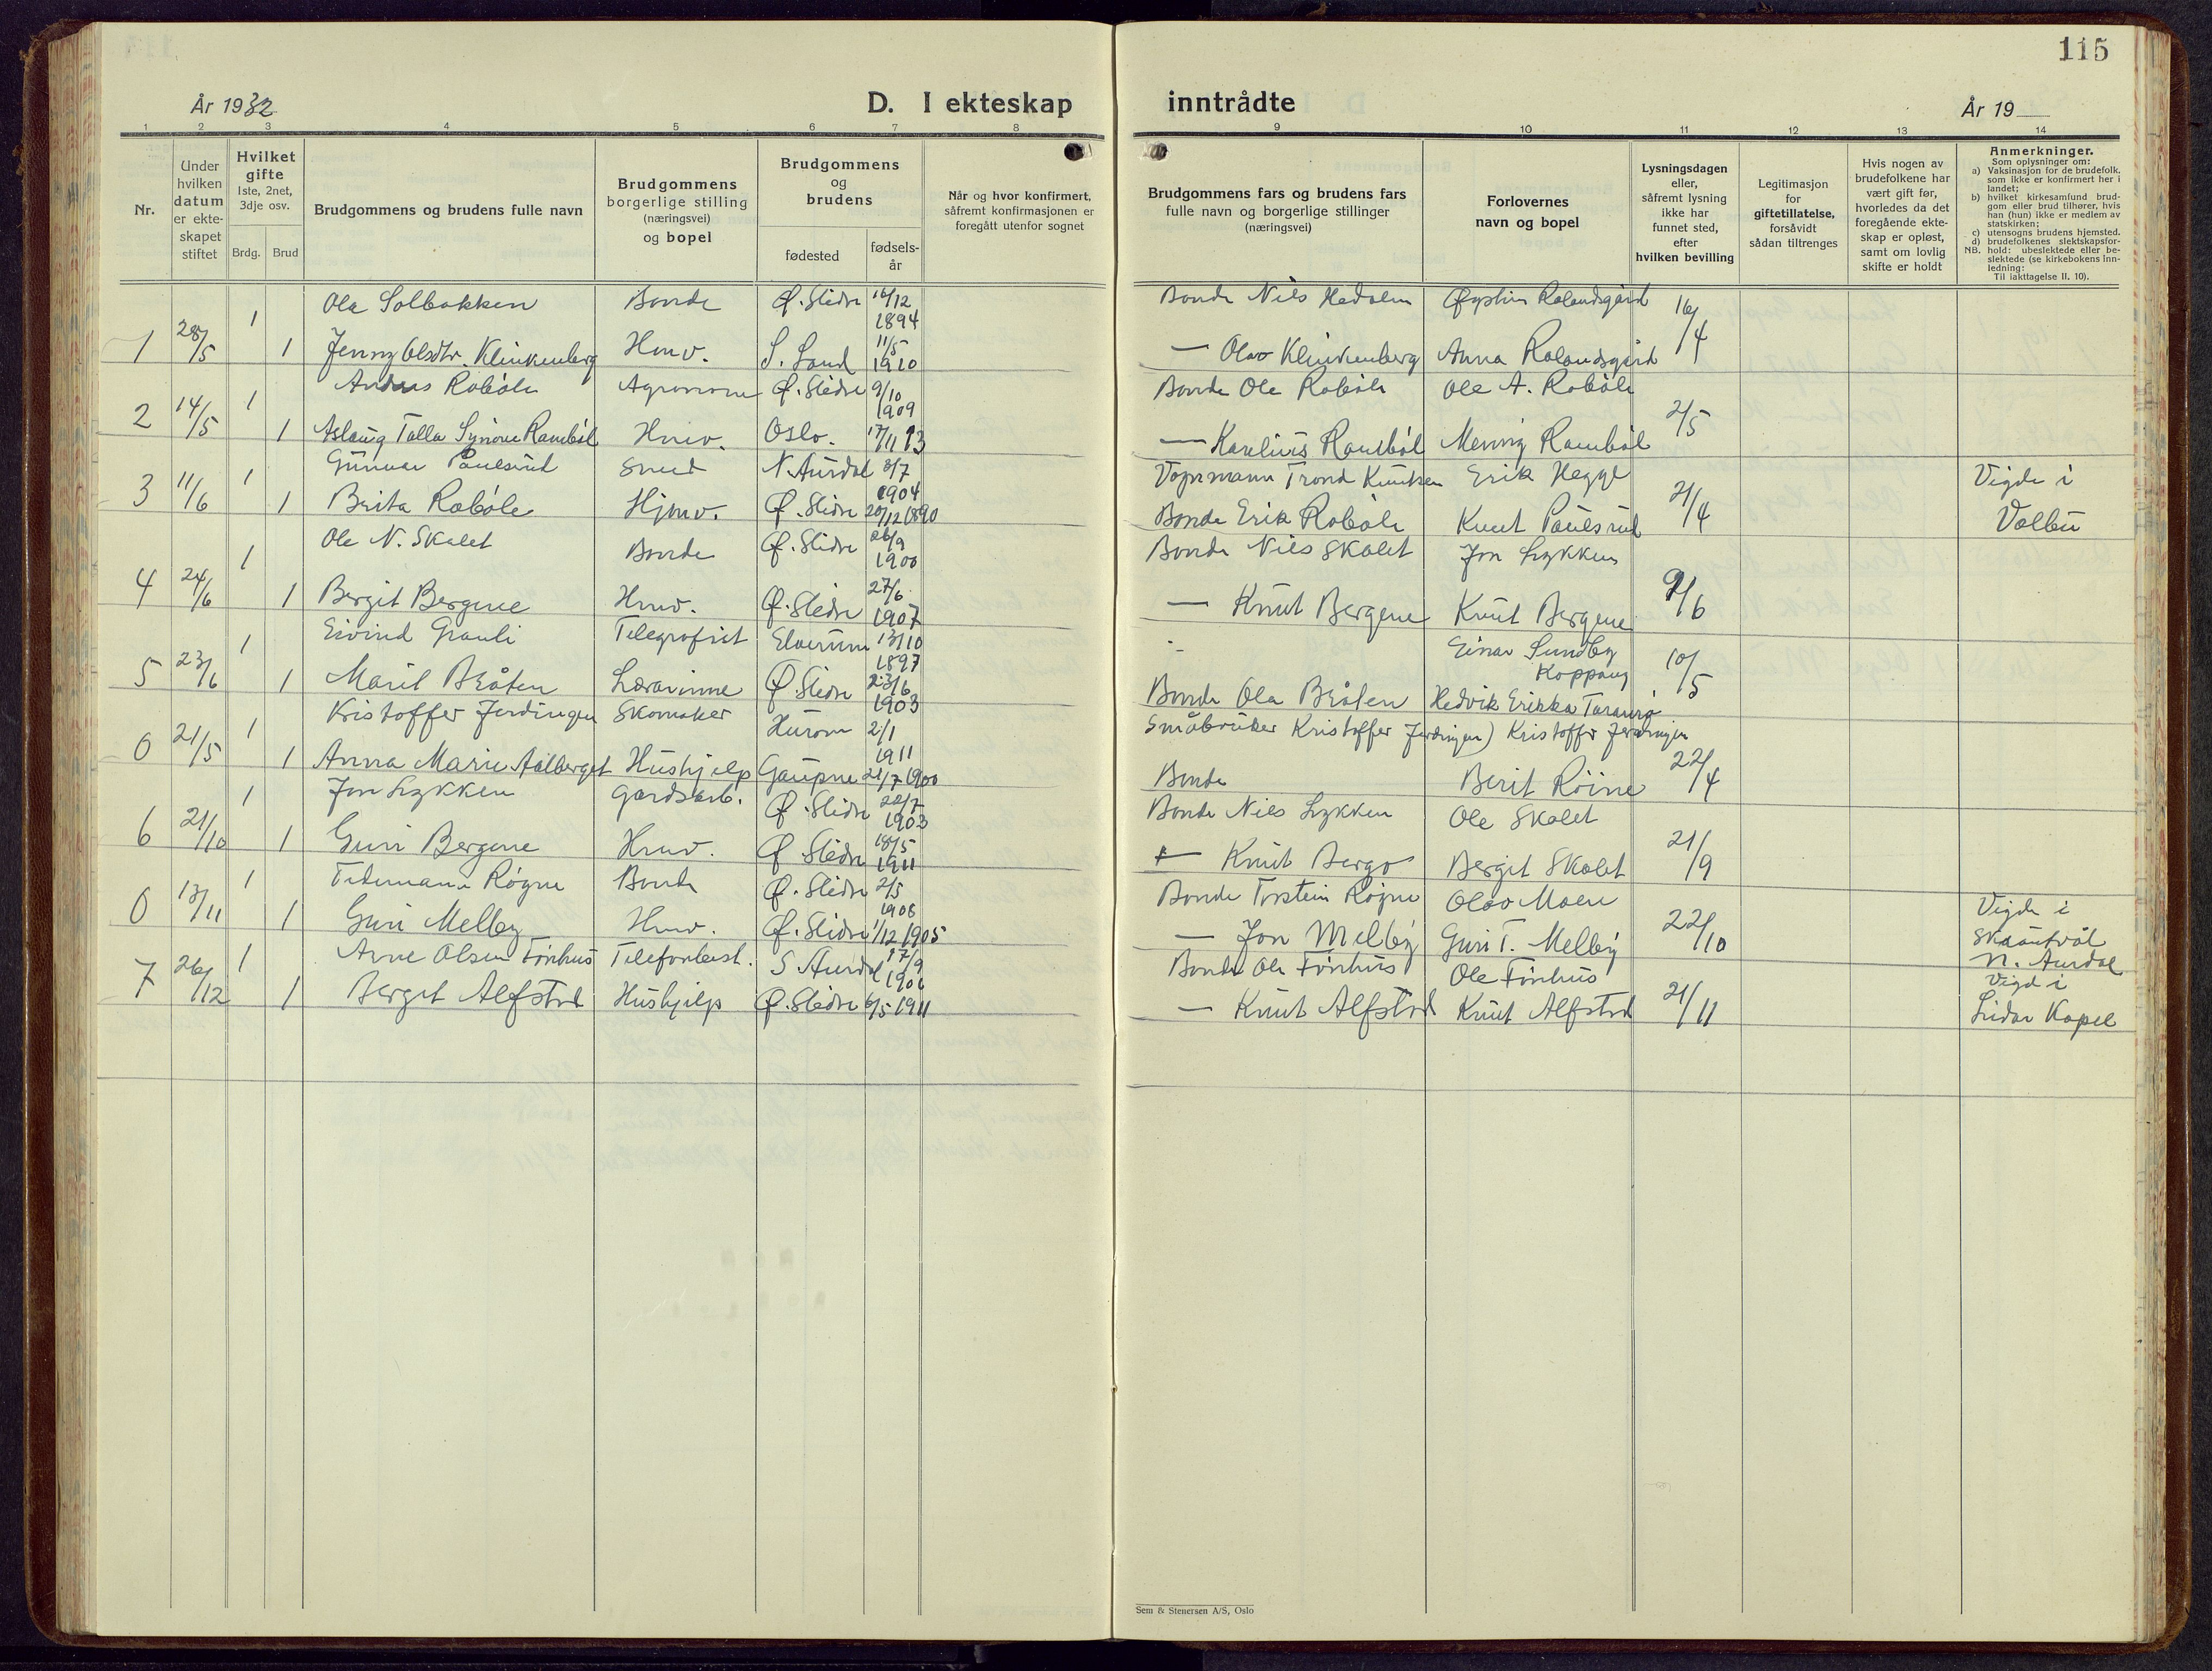 115
År 1932
D. I ekteskap
inntrådte
År 19
1 2 3 4 5 6 7 8
9 10 11 12 13 14
Nr.
Under
hvilken
datum
er ekte-
skapet
stiftet
Hvilket
gifte
1ste, 2net,
3dje osv.
Brdg.
Brud
Brudgommens og brudens fulle navn
Brudgommens
borgerlige stilling
(næringsvei)
og bopel
Brudgommens
og
brudens
fødested
fødsels-
år
Når og hvor konfirmert,
såfremt konfirmasjonen er
foregått utenfor sognet
Brudgommens fars og brudens fars
fulle navn og borgerlige stillinger
(næringsvei)
Forlovernes
navn og bopel
Lysningsdagen
eller,
såfremt lysning
ikke har
funnet sted,
efter
hvilken bevilling
Legitimasjon
for
giftetillatelse,
forsåvidt
sådan tiltrenges
Hvis nogen av
brudefolkene har
vært gift før,
hvorledes da det
foregående ekte-
skap er opløst,
samt om lovlig
skifte er holdt
Anmerkninger.
Som oplysninger om:
a) Vaksinasjon for de brudefolk.
som ikke er konfirmert her i
landet;
b) hvilket kirkesamfund brud-
gom eller brud tilhører, hvis
han (hun) ikke er medlem av
statskirken;
c) utensogns brudens hjemsted.
d) brudefolkenes slektskapsfor-
NB. hold: ubeslektede eller be-
slektede (se kirkebokens Inn-
ledning:
Til iakttagelse II. 10).
1 Ola Solbakken Bonde Ø. Slidre 16/12 1894 Bonde Nils Hedalen Øystin Rolandsgård 16/4
1 28/5 1 Jenny Olsdtr. Klinkenberg Hmv. S. Land 11/5 1910 — Olav Klinkenberg Anna Rolandsgård
1 Anders Robøle Agronom Ø. Slidre 9/10 1909 Bonde Ole Robøle Ole A. Robøle
2 14/5 1 Aslaug Talla Synøve Rambøl Hmv. Oslo. 17/11 13 — Karelius Rambøl Menny Rambøl 2/5
1 Gunnar Paulsrud Smed N. Aurdal 3/7 1904 Trond Knutsen Erik Hegge
3 11/6 1 Brita Robøle Hjmv. Ø. Slidre 20/12 1890 Bonde Erik Robøle Knut Paulsrud 21/4 Vigde i
Volbu
1 Ole N. Skalet Bonde Ø. Slidre 26/9 1900 Bonde Nils Skalet Jon Lykken
4 24/6 1 Bergit Bergene Hmv. Ø. Slidre 27/6 1907 — Knut Bergene Knut Bergene 9/6
1 Eivind Grauli Telegrafist Elverum 13/10 1897 - Einar Sundby
Koppang
5 23/6 1 Marit Bråten Lærarinne Ø. Slidre 23/6 1903 Bonde Ola Bråten Hedvik Erikka 10/5
1 Kristoffer Jerdingen Skomaker Hurom 2/1 1911 Småbruker Kristoffer Jerdingen) Kristoffer Jerdingen
0 21/5 1 Anna Marie Aalberget Hushjelp Gaupne 21/7 1900 Bonde Berit Röine 22/4
1 Jon Lykken Gardsarb. Ø. Slidre 20/7 1903 Bonde Nils Lykken Ole Skalet
6 21/10 1 Guri Bergene Hmv. Ø. Slidre 18/5 1911 — Knut Bergo Berget Skalet 21/9
1 Tidemann Røgne Bonde Ø. Slidre 2/5 1908 Bonde Torstein Røgne Olav Moen
0 13/11 1 Guri Melby Hmv. Ø. Slidre 1/12 1905 — Jon Melby Guri T. Melby 22/10 Vigde i
Skautvål
N. Aurdal
1 Arne Olsen Fönhus Telefonbest. S Aurdal 17/9 1906 Bonde Ole Fönhus Ole Fönhus
7 26/12 1 Berget Alfstad Hushjelp Ø. Slidre 6/5 1911 — Knut Alfstad Knut Alfstad 21/11 Vigd i
Lidar Kapel
Sem & Stenersen A/S, Oslo